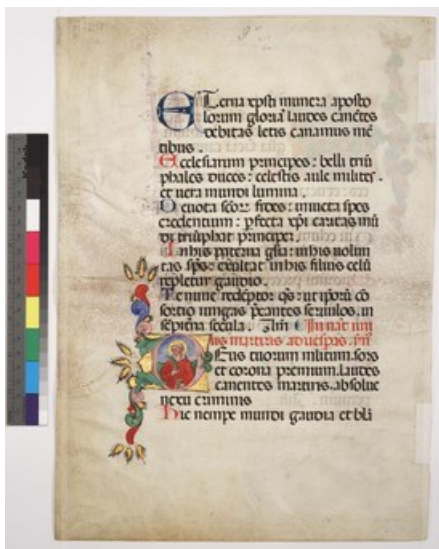 Eterna xpsti munera aposto
lorum gloria laudes canētes
debitas letis canamus mē
tibus.
Ecclesiarum principes: belli triū
phales duces: celestis aule milites.
et uera mundi lumina.
Deuota scōr fides: inuicta spes
credentium: pfecta xpi caritas mū
di triūphat principem.
In his paterna glīa: in his uolun
tas sps: exultat in his filius celū
repletur gaudio.
Te nunc redēptor qs: ut ipōrū cō
sortio iungas pcantes seruulos. in
sepitena secula. Amē In nat uni
uis martiris ad uespas. ymn
Deus tuorum militum. sors
et corona premium. laudes
canentes martiris. absolue
nexu criminis
Hic nempe mundi gaudia et blā